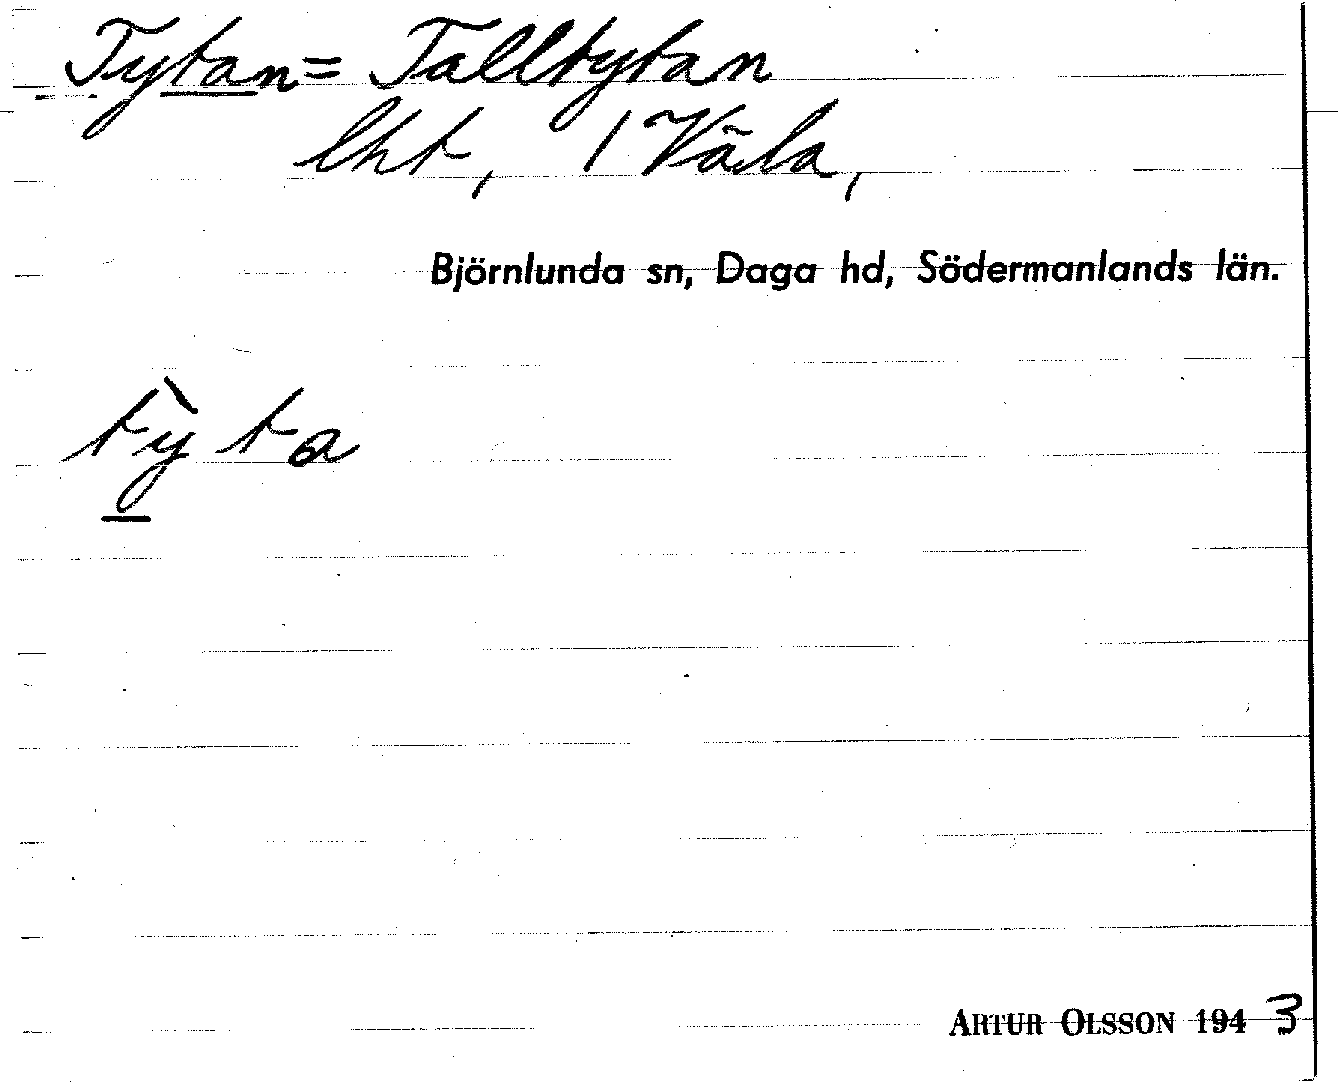 Tytan = Talltytan
lht, 1 Väla,
Björnlunda sn, Daga hd, Södermanlands län.
tỳta
ARTUR OLSSON 1943